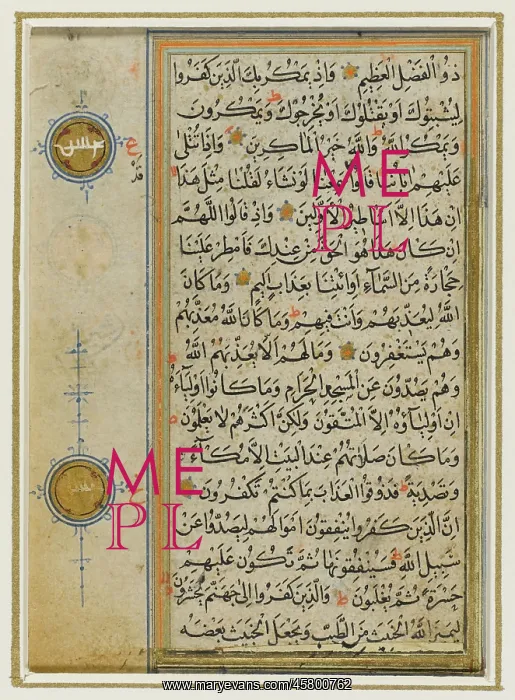 ذو الفضل العظيم واذ يمكر بك الذين كفروا
ليثبتوك او يقتلوك او يخرجوك ويمكرون
ويمكر الله والله خير الماكرين واذا تتلى
عليهم اياتنا قالوا قد سمعنا لو نشاء لقلنا مثل هذا
ان هذا الا اساطير الاولين واذ قالوا اللهم
ان كان هذا هو الحق من عندك فامطر علينا
حجارة من السماء او ائتنا بعذاب اليم وما كان
الله ليعذبهم وانت فيهم وما كان الله معذبهم
وهم يستغفرون وما لهم الا يعذبهم الله
وهم يصدون عن المسجد الحرام وما كانوا اولياءه
ان اولياؤه الا المتقون ولكن اكثرهم لا يعلمون
وما كان صلاتهم عند البيت الا مكاء
وتصدية فذوقوا العذاب بما كنتم تكفرون
ان الذين كفروا ينفقون اموالهم ليصدوا عن
سبيل الله فسينفقونها ثم تكون عليهم
حسرة ثم يغلبون والذين كفروا الى جهنم يحشرون
ليميز الله الخبيث من الطيب ويجعل الخبيث بعضه
ME
PL
ME
PL
www.maryevans.com/45800762